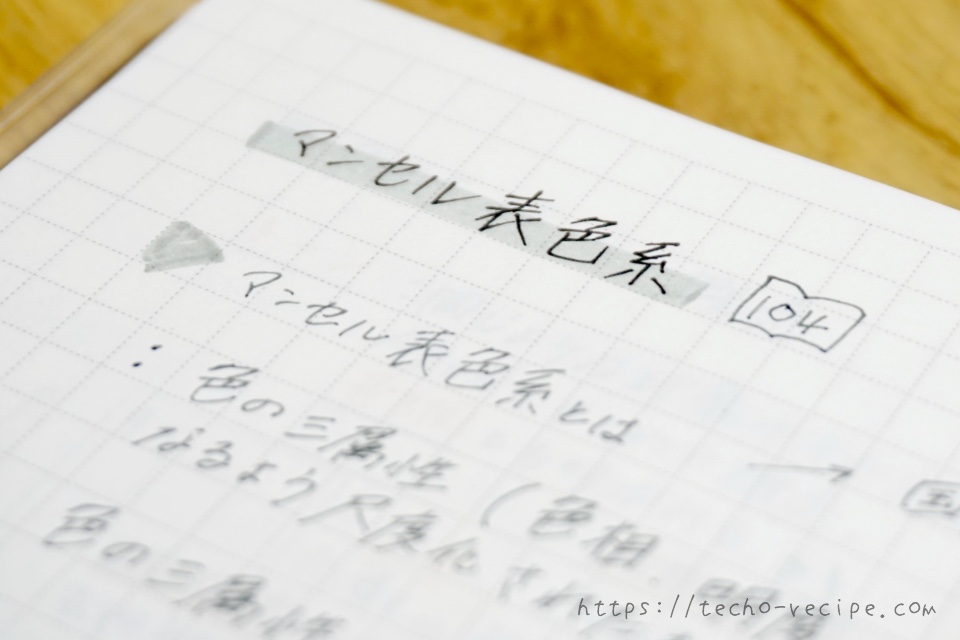 マンセル表色系 104
マンセル表色系とは
: 色の三属性 (色相
なるよう尺度化された
色の三属性
https://techo-recipe.com